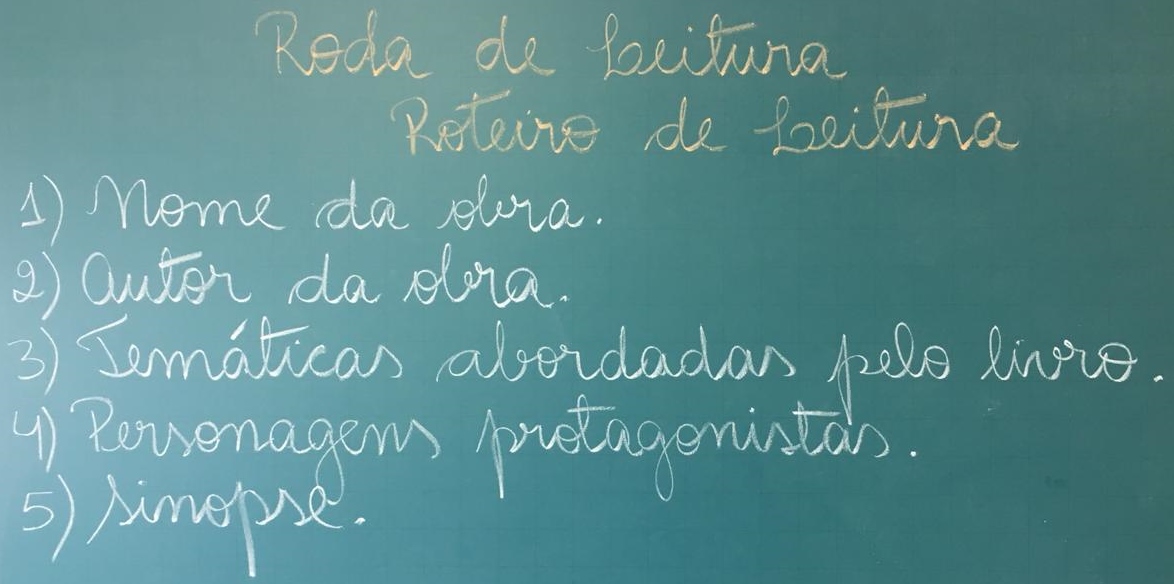 Roda de Leitura
Roteiro de Leitura
1) Nome da obra.
2) Autor da obra.
3) Temáticas abordadas pelo livro.
4) Personagens protagonistas.
5) Sinopse.